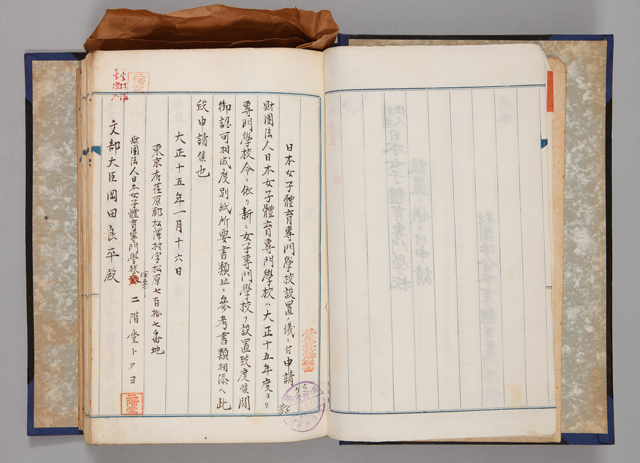 日本女子體育專門學校設置ノ儀ニ付申請
財團法人日本女子體育專門學校ハ大正十五年度ヨリ
專門學校令ニ依リ新ニ女子專門學校ヲ設置致度候間
御認可相成度別紙所要書類並ニ參考書類相添ヘ此
段申請候也
大正十五年一月十六日
東京府荏原郡松澤村字松原七百拾七番地
財團法人日本女子體育專門學校
二階堂トクヨ
文部大臣岡田良平殿